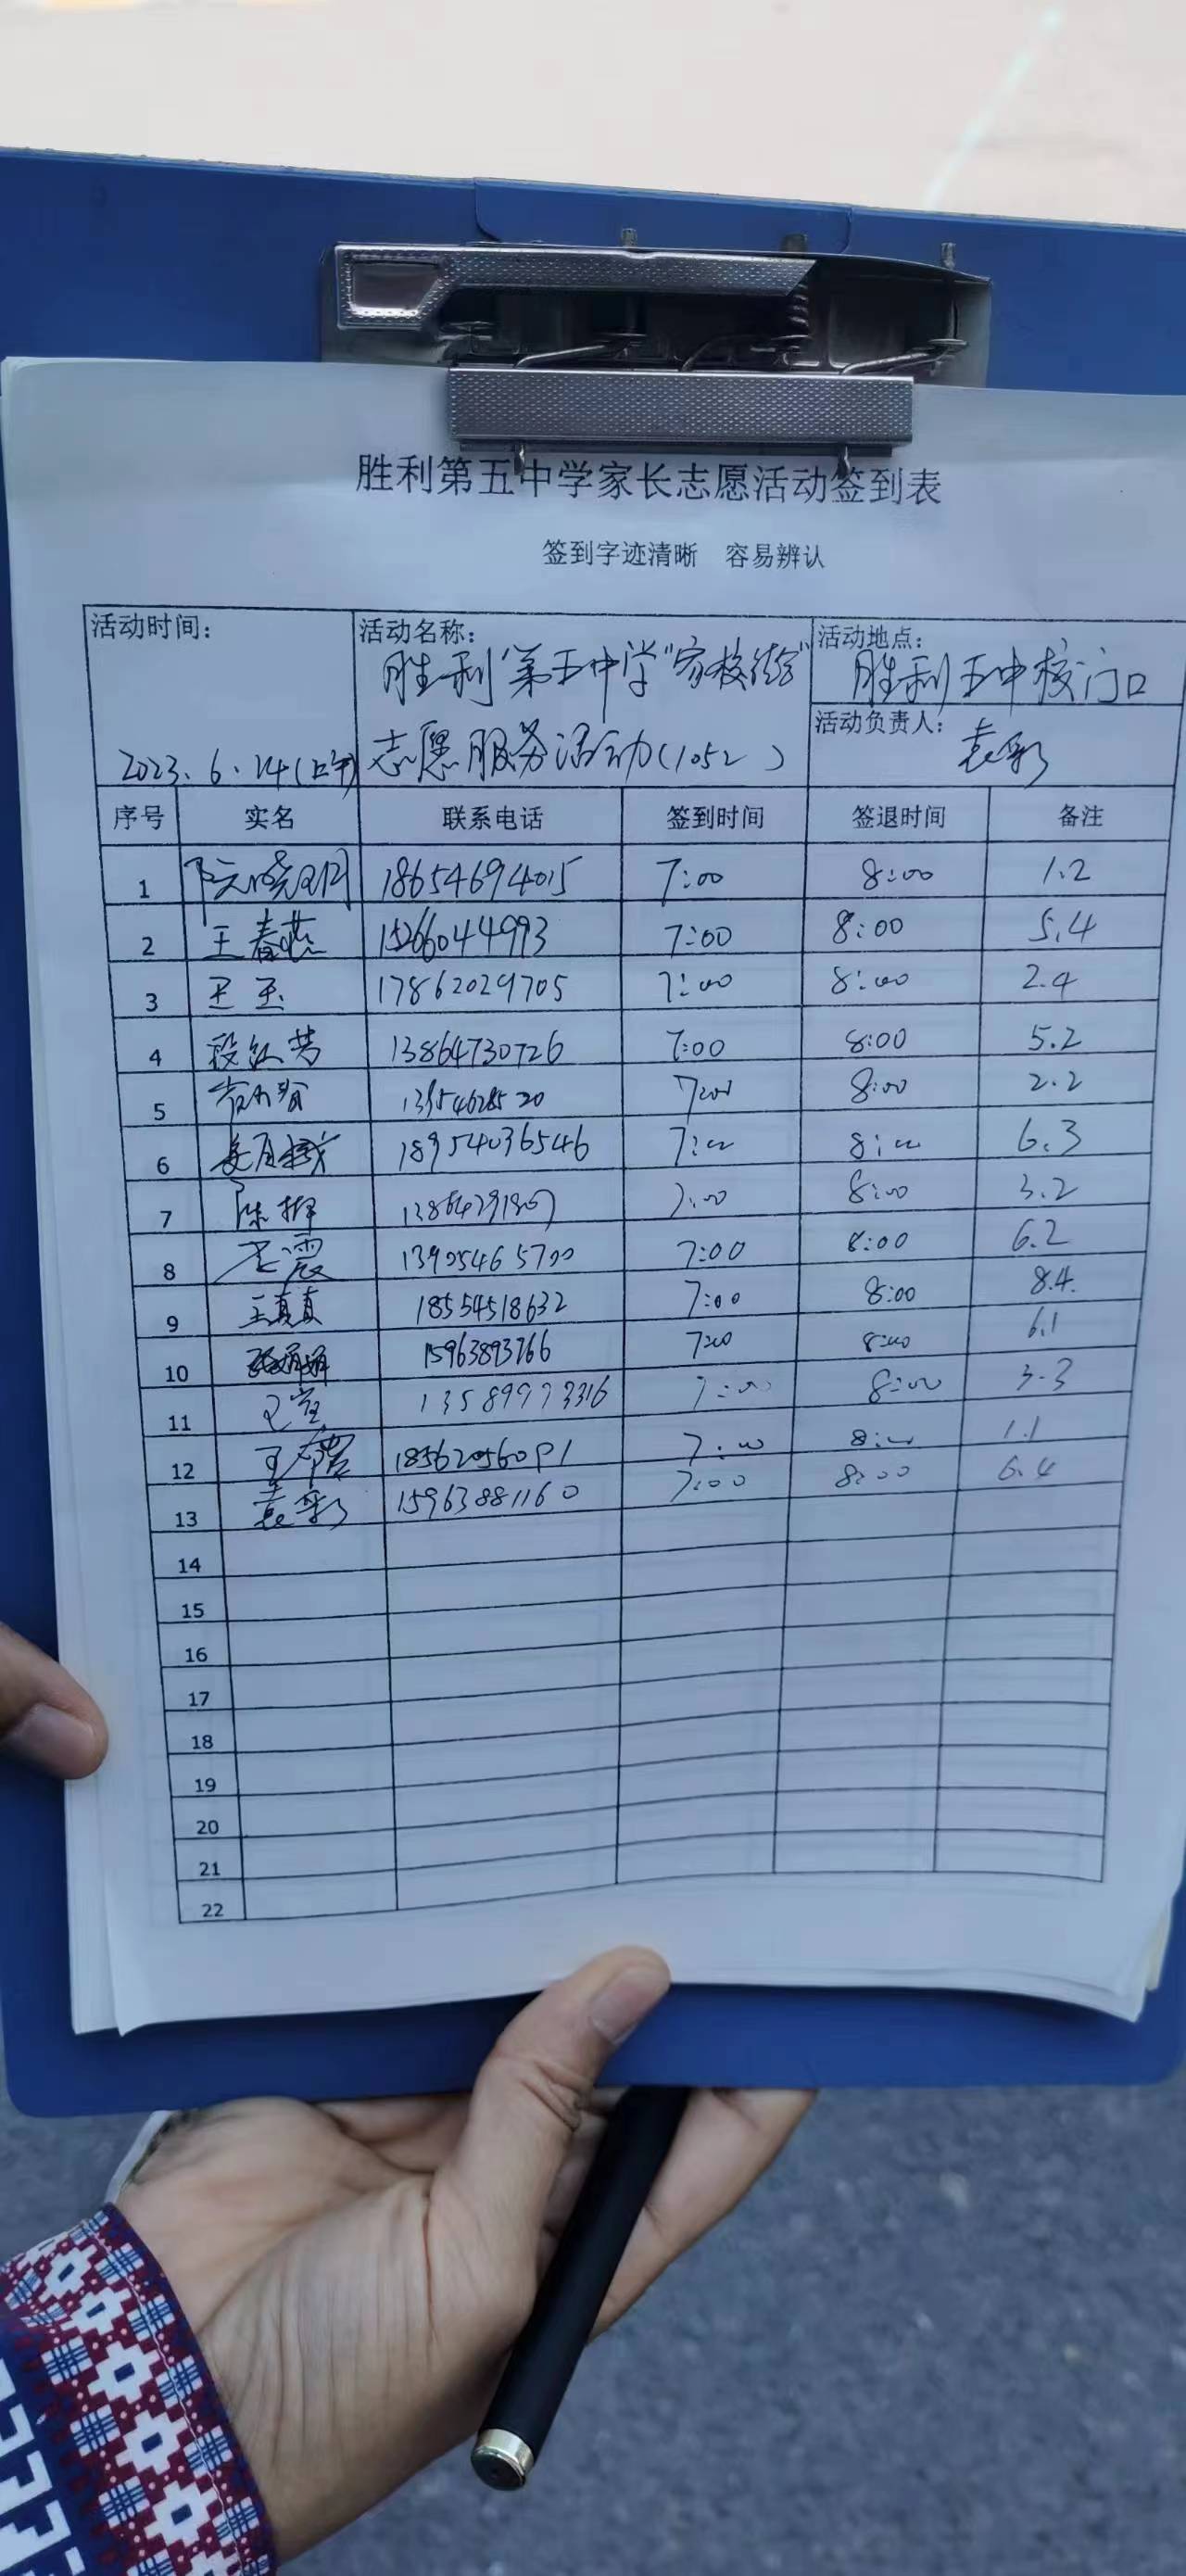 胜利第五中学家长志愿活动签到表
签到字迹清晰 容易辨认
活动时间： 2023.6.14(上午)
活动名称： 胜利第五中学"家校
志愿服务活动(1052)
活动地点： 胜利五中校门口
活动负责人： 袁彩
序号 实名 联系电话 签到时间 签退时间 备注
1 18654694015 7:00 8:00 1.2
2 王春燕 15266044993 7:00 8:00 5.4
3 王玉 17862029705 7:00 8:00 2.4
4 段红芳 13864730726 7:00 8:00 5.2
5 7:00 8:00 2.2
6 18954036546 7:00 8:00 6.3
7 陈 7:00 8:00 3.2
8 震 13905465700 7:00 8:00 6.2
9 王真真 18554518632 7:00 8:00 8.4
10 15963893766 7:00 8:00 6.1
11 13589973316 7:00 8:00 3.3
12 王 7:00 8:00 1.1
13 袁彩 15963881160 7:00 8:00 6.4
14
15
16
17
18
19
20
21
22